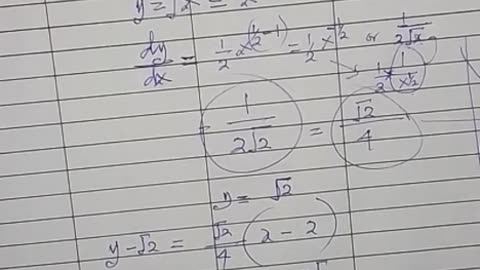 y = √x =
dy/dx = 1/2 x^(1/2 - 1) = 1/2 x^-1/2 or 1/2√x
1/2 × 1/x^1/2
= 1/2√2 = √2/4
y = √2
y - √2 = √2/4 (x - 2)